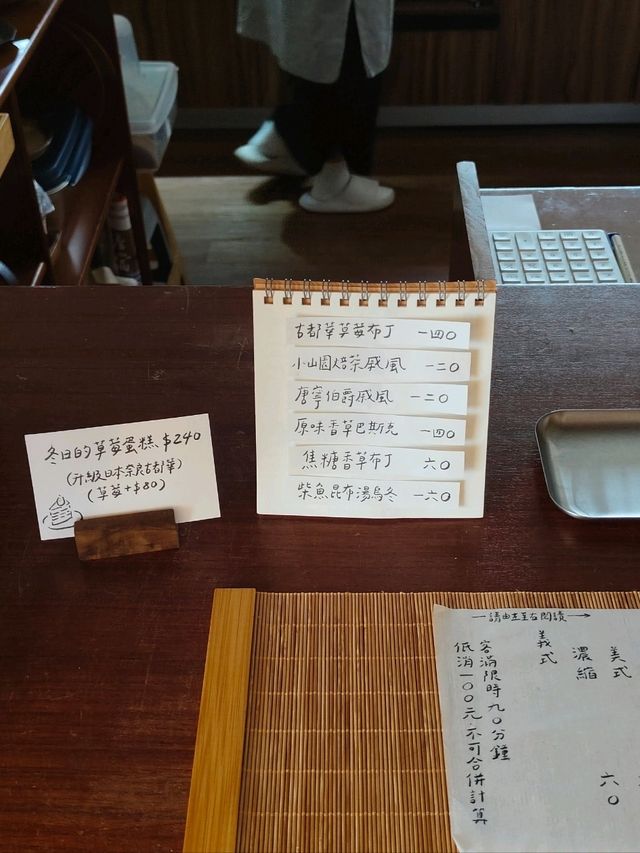 古都華草莓布丁 一四〇
小山園焙茶戚風 一二〇
唐寧伯爵戚風 一二〇
原味香草巴斯克 一四〇
焦糖香草布丁 六〇
柴魚昆布湯烏冬 一六〇
冬日的草莓蛋糕 $240
(升級日本奈良古都華)
(草莓+$80)
一請由左至右閱讀→
低消一〇〇元.不可合併計算
客滿限時九〇分鐘
義式
濃縮 六〇
美式